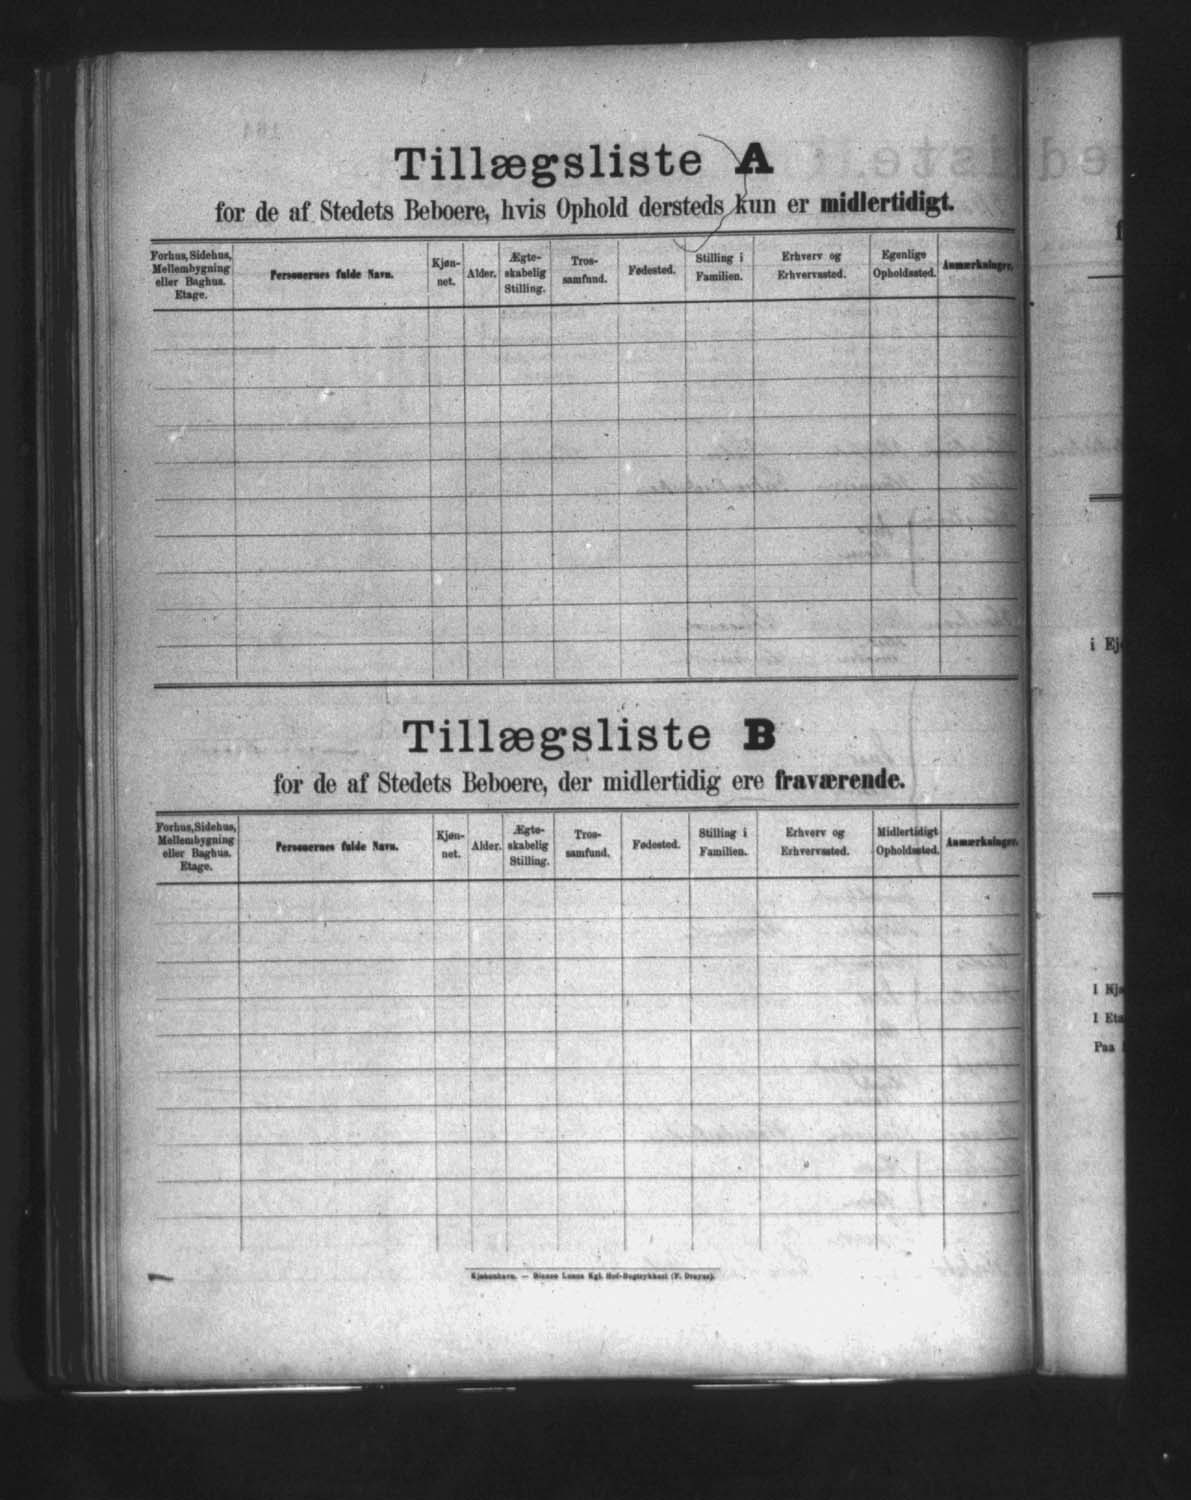 Tillægsliste A
for de af Stedets Beboere, hvis Ophold dersteds kun er midlertidigt.
Forhus, Sidehus, Mellembygning eller Baghus. Etage.
Personernes fulde Navn.
Kjøn-
net.
Alder.
Ægte-
skabelig
Stilling.
Tros-
samfund.
Fødested.
Stilling i
Familien.
Erhverv og
Erhvervssted.
Egenlige
Opholdssted.
Anmærkninger.
Tillægsliste B
for de af Stedets Beboere, der midlertidig ere fraværende.
Forhus, Sidehus,
Mellembygning
eller Baghus.
Etage.
Personernes fulde Navn.
Kjøn-
net.
Alder.
Ægte-
skabelig
Stilling.
Tros-
samfund.
Fødested.
Stilling i
Familien.
Erhverv og
Erhvervssted.
Midlertidigt
Opholdssted.
Anmærkninger.
Kjøbenhavn. — Bianco Lunos Kgl. Hof-Bogtrykkeri (F. Dreyer).
i Ej
I Kjø
I Eta
Paa